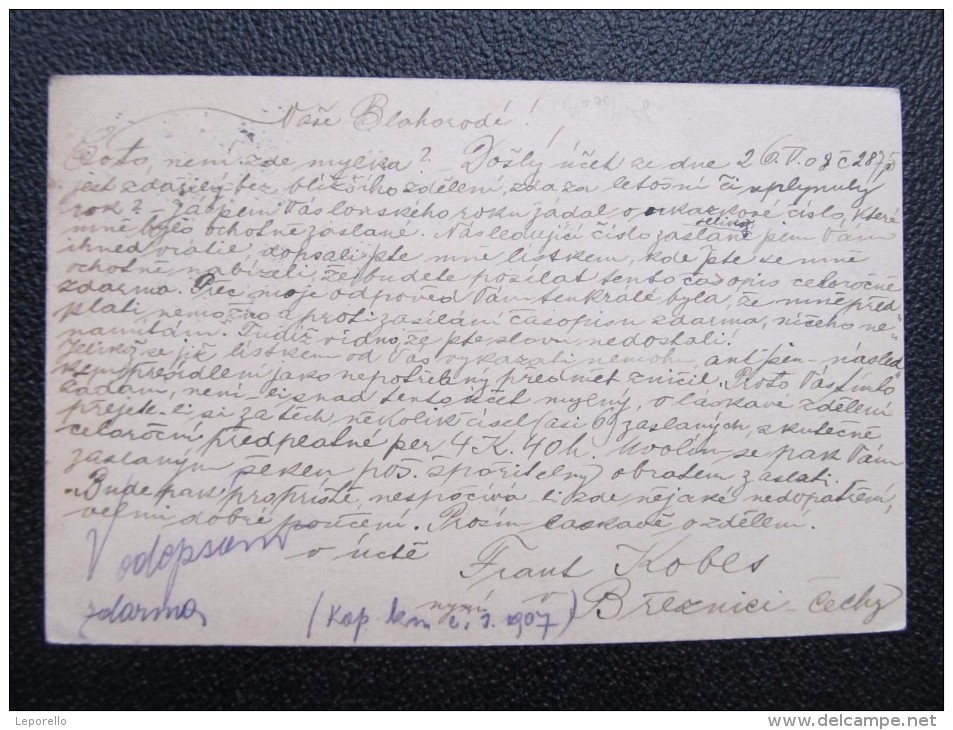 Vaše Blahorodé!
není zde mylka? Došlý účet ze dne 26.V.08 č 287
jest zdařilý bez bližšího zdělení, zda za letošní či uplynulý
rok? Já jsem Vás loňského roku žádal o ukazkové číslo, které
mně bylo ochotně zaslané. Následující číslo zaslané jsem Vám
ihned vrátil, dopsali jste mně lístkem, kde jste se mně
ochotně nabízeli, že budete posílat tento časopis celoročně
zdarma. Přec moje odpověď Vám tenkráte byla, že mně před-
plati nemožno a proti zasílání časopisu zdarma, ničeho ne-
namítám. Tudíž vidno, že jste slovu nedostáli!
Jelikož se již lístkem od Vás vykazati nemohu, ant jsem násled-
kem přesídlení jako nepotřebný předmět zničil. Proto Vás tímto
žádám, není-li snad tento účet mylný, o laskavé zdělení
přejete-li si za těch několik čísel (asi 6) zaslaných, skutečně
celoroční předplatné per 4 K. 40 h. uvolím se pak Vám
zaslaným šekem poš. spořitelny obratem zaslati.
Bude pak pro příště, nespočívá-li zde nějaké nedopatření,
velmi dobré poučení. Prosím laskavě o zdělení.
v úctě
Frant Kobes
nyní v Březnici - Čechy
V odepsano
zdarma
(Kop. kn č. 3. 1907)
Leporello
www.delcampe.net